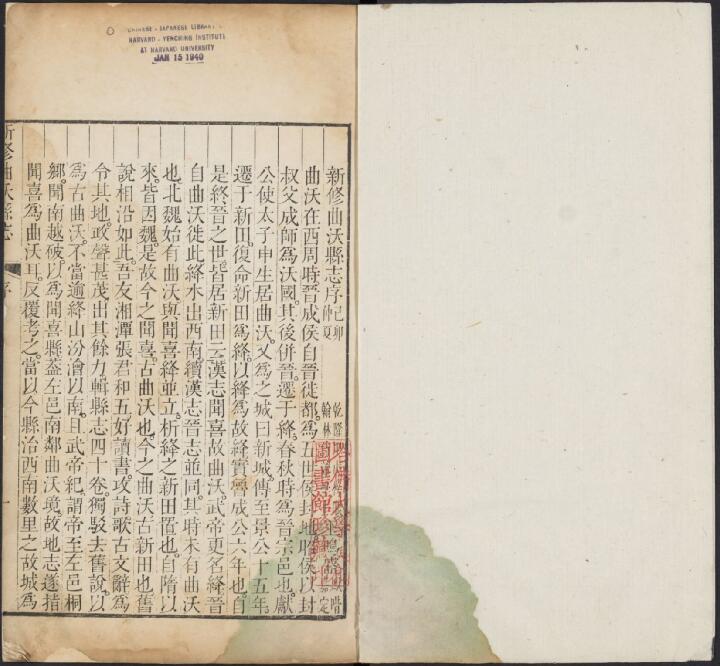 CHINESE - JAPANESE LIBRARY
HARVARD - YENCHING INSTITUTE
AT HARVARD UNIVERSITY
JAN 15 1940
新修曲沃縣志序己卯仲夏
乾隆
翰林
曲沃在西周時晉成侯自晉徙都爲五世侯封地昭侯以封
叔父成師爲沃國其後併晉遷于絳春秋時爲晉宗邑也獻
公使太子申生居曲沃又爲之城曰新城傳至景公十五年
遷于新田復命新田爲絳以絳爲故絳實晉成公六年也自
是終晉之世皆居新田云漢志聞喜故曲沃武帝更名絳晉
自曲沃徙此絳水出西南續漢志晉志並同其時未有曲沃
也北魏始有曲沃與聞喜絳並立析絳之新田置也自隋以
來皆因魏是故今之聞喜古曲沃也今之曲沃古新田也舊
說相沿如此吾友湘潭張君和五好讀書攻詩歌古文辭爲
令其地政聲甚茂出其餘力輯縣志四十卷獨駁去舊說以
爲古曲沃不當逾絳山汾澮以南且武帝紀謂帝至左邑桐
鄉聞南越破以爲聞喜縣葢左邑南鄰曲沃境故地志遂指
聞喜爲曲沃耳反覆考之當以今縣治西南數里之故城爲
新修曲沃縣志
序
一